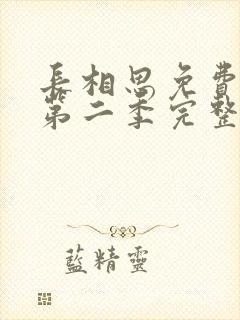 長相思免費
第二季完整
藍精靈